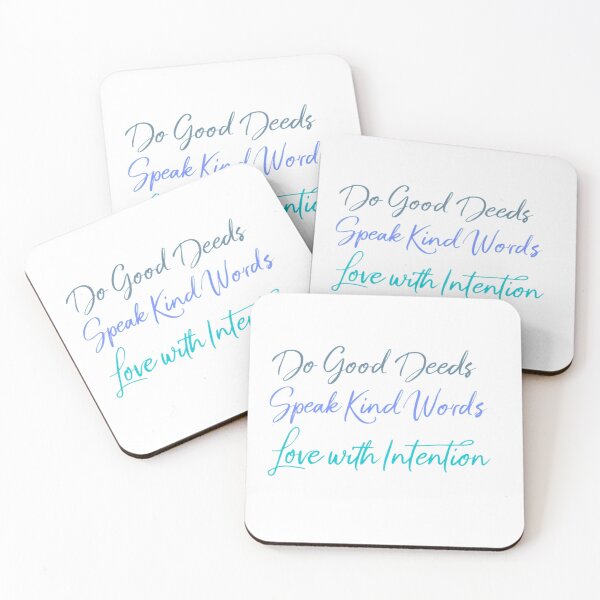 Do Good Deeds
Speak Kind Words
Do Good Deeds
Speak Kind Words
Love with Intention
Do Good Deeds
Speak Kind Words
Love with
Do Good Deeds
Speak Kind Words
Love with Intention